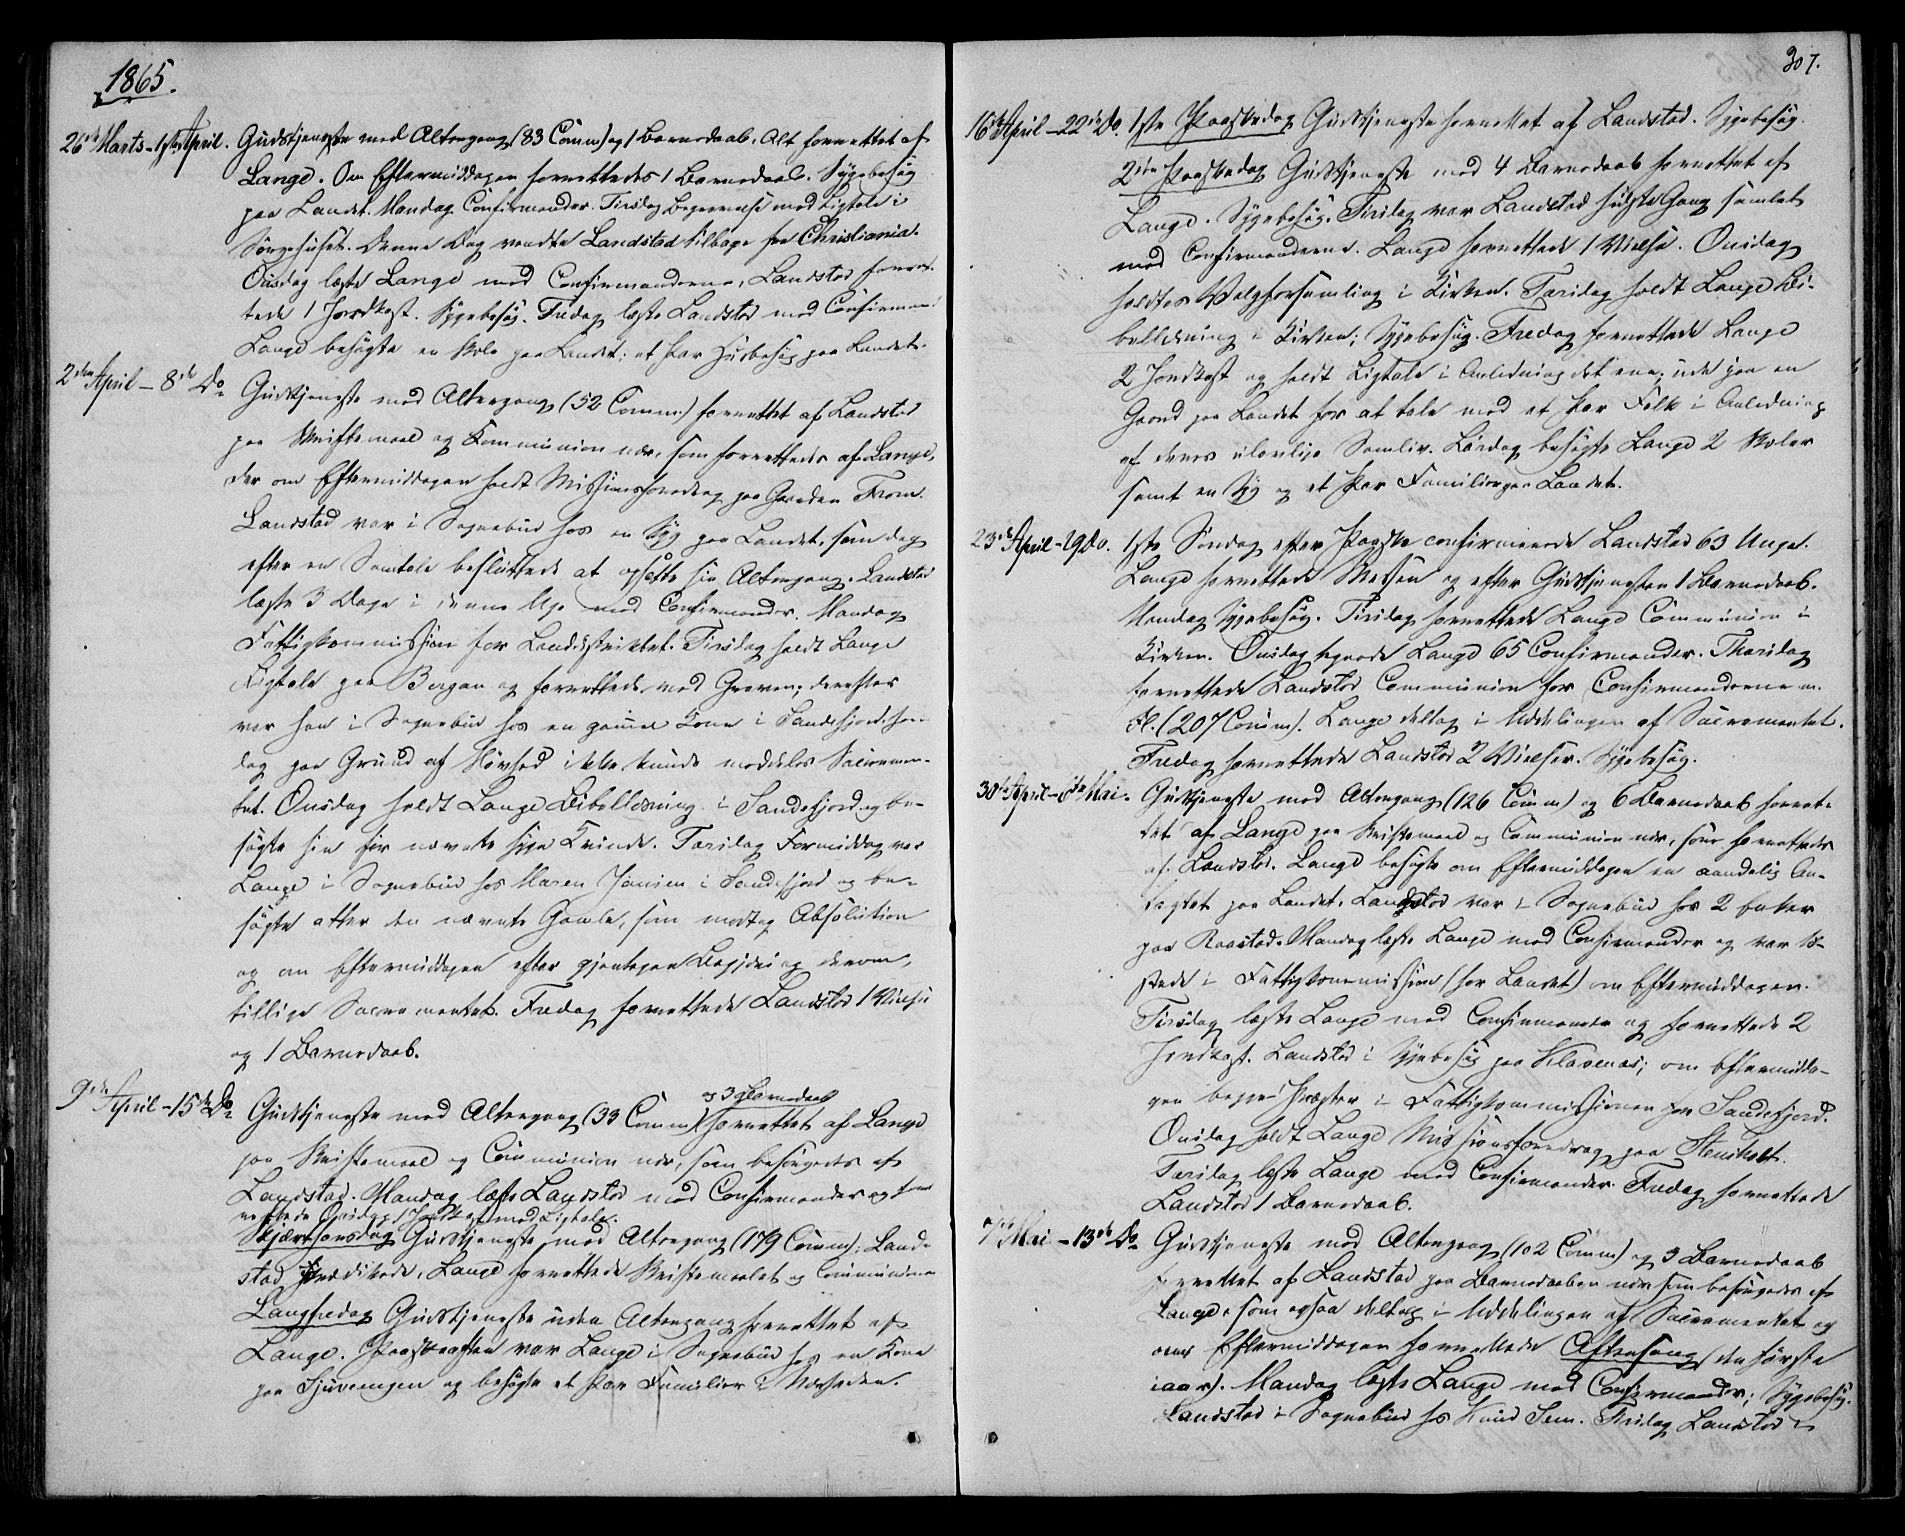 1865.
26de Marts-1ste April. Gudstjeneste med Altergang (83 Comm) og 1 Barnedaab. Alt forrettet af
Lange. Om Eftermiddagen forrettedes 1 Barnedaab. Sygebesøg
paa Landet. Mandag Confirmander. Tirsdag Begravelse med Ligtale i
Sørgehuset. Denne Dag vendte Landstad tilbage fra Christiania.
Onsdag læste Lange med Confirmanderne, Landstad forret-
tede 1 Jordkast. Sygebesøg. Fredag læste Landstad med Confirman:
Lange besøgte en Skole paa Landet; et Par Husbesøg paa Landet.
2den April - 8de Do Gudstjeneste med Altergang (52 Comm) forrettet af Landstad
paa Skriftemaal og Kommunion nær, som forrettedes af Lange,
der om Eftermiddagen holdt Missionsforedrag paa Gaarden From.
Landstad var i Sognebud hos en Syg paa Landet, som dog
efter en Samtale besluttede at opsætte sin Altergang. Landstad
læste 3 Dage i denne Uge med Confirmander. Mandag
Fattigkommission for Landdistriktet. Tirsdag holdt Lange
Ligtale paa Bergan og forrettede ved Graven; derefter
var han i Sognebud hos en gammel Kone i Sandefjord, som
dog paa Grund af Sløvhed ikke kunde meddeles Sacramen-
tet. Onsdag holdt Lange Bibellæsning i Sandefjord og be-
søgte sin før nævnte syge Kvinde. Torsdag Formiddag var
Lange i Sognebud hos Maren Jansen i Sandefjord og be-
søgte atter den nævnte Gamle, som modtog Absolution
og om Eftermiddagen efter gjentagen Begjæring derom,
tillige Sacramentet. Fredag forrettede Landstad 1 Vielse
og 1 Barnedaab.
og 3 Barnedaab
9de April - 15de Do Gudstjeneste med Altergang (33 Comm) forrettet af Lange
paa Skriftemaal og Communion nær, som besørgedes af
Landstad. Mandag læste Landstad med Confirmander og for-
rettede Onsdag 1 Jordkast med Ligtale.
Skjærthorsdag Gudstjeneste med Altergang (179 Comm); Land-
stad prædikede, Lange forrettede Skriftemaalet og Communionen
Langfredag Gudstjeneste uden Altergang forrettet af
Lange. Paaskeaften var Lange i Sognebud hos en Kone
paa Tjuvengen og besøgte et Par Familier i Nærheden.
307.
16de April - 22de Do. 1ste Paaskedag Gudstjeneste forrettet af Landstad. Sygebesøg.
2den Paaskedag Gudstjeneste med 4 Barnedaab forrettet af
Lange. Sygebesøg. Tirsdag var Landstad sidste Gang samlet
med Confirmanderne. Lange forrettede 1 Vielse. Onsdag
holdtes Valgforsamling i Kirken. Torsdag holdt Lange Bi-
bellæsning i Kirken; Sygebesøg. Fredag forrettede Lange
2 Jordkast og holdt Ligtale i Anledning det ene; ude paa en
Gaard paa Landet for at tale med et Par Folk i Anledning
af deres ulovlige Samliv. Lørdag besøgte Lange 2 Skoler
samt en Syg og et Par Familier paa Landet.
23de April - 29 Do. 1ste Søndag efter Paaske confirmerede Landstad 63 Unge.
Lange forrettede Messen og efter Gudstjenesten 1 Barnedaab.
Mandag Sygebesøg. Tirsdag forrettede Lange Communion i
Kirken. Onsdag prøvede Lange 65 Confirmander. Thorsdag
forrettede Landstad Communion for Confirmanderne m.
Fl. (207 Comm). Lange deltog i Uddelingen af Sacramentet.
Fredag forrettede Landstad 2 Vielser. Sygebesøg.
30te April - 6te Mai. Gudstjeneste med Altergang (126 Comm) og 6 Barnedaab forret-
tet af Lange paa Skriftemaal og Communion nær, som forrettedes
af Landstad. Lange besøgte om Eftermiddagen en aandelig An-
fægtet paa Landet. Landstad var i Sognebud hos 2
paa Raastad. Mandag læste Lange med Confirmander og var til-
stede i Fattigkommission (for Landet) om Eftermiddagen.
Tirsdag læste Lange med Confirmander og forrettede 2
Jordkast. Landstad i Sygebesøg paa Klavenæs; om Eftermidda-
gen begge Præster i Fattigkommissionen for Sandefjord.
Onsdag holdt Lange Missionsforedrag paa Stensholt.
Torsdag læste Lange med Confirmander. Fredag forrettede
Landstad 1 Barnedaab.
7de Mai - 13de Do Gudstjeneste med Altergang (102 Comm) og 3 Barnedaab
forrettet af Landstad paa Barnedaaben nær som besørgedes af
Lange, som ogsaa deltog i Uddelingen af Sacramentet og
om Eftermiddagen forrettede Aftensang (den første
iaar). Mandag læste Lange med Confirmander; Sygebesøg.
Landstad i Sognebud hos Knud Sem. Tirsdag Landstad i